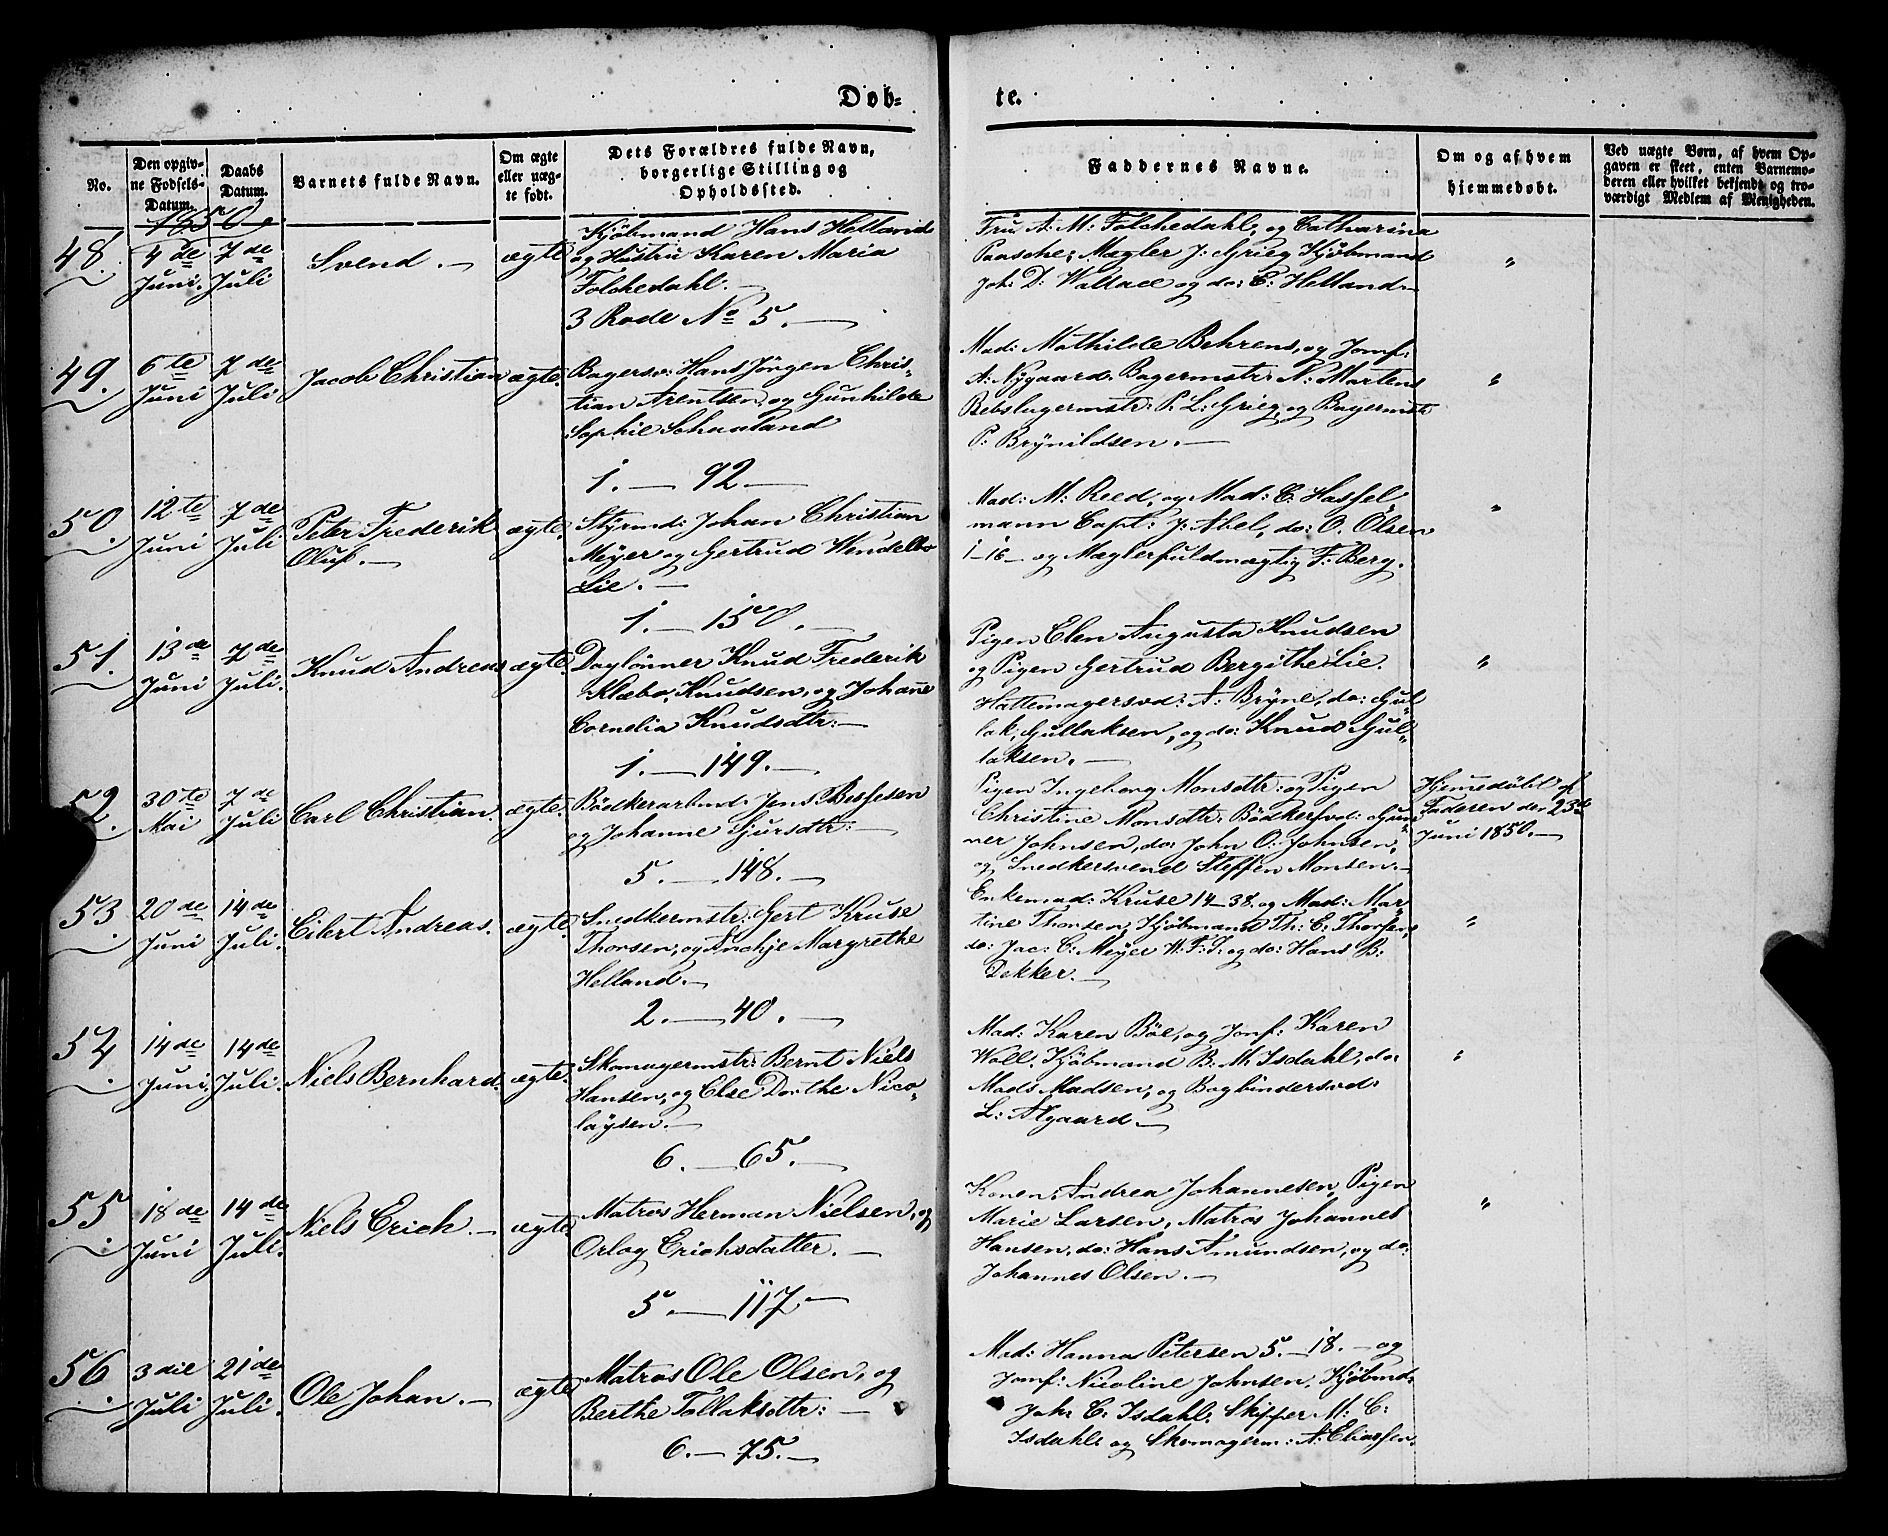 Døb-
te.
No.
Den opgiv-
ne Fødsels-
Datum.
Daabs
Datum.
Barnets fulde Navn.
Om ægte
eller uæg-
te født.
Dets Forældres fulde Navn,
borgerlige Stilling og
Opholdssted.
Faddernes Navne.
Om og af hvem
hjemmedøbt.
Ved uægte Børn, af hvem Op-
gaven er skeet, enten Barnemo-
deren eller hvilket bekjendt og tro-
værdigt Medlem af Menigheden.
1850.
48.
4de
Juni.
7de
Juli
Svend.
ægte
Kjöbmand Hans Helland
og Hustru Karen Maria
Folchedahl.
3 Rode No 5.
Fru A: M: Folchedahl, og Catharina
Paasche; Mægler J: Grieg Kjöbmand
Joh: D: Wallace og do: C: Helland
"
49.
6te
Juni
7de
Juli
Jacob Christian
ægte
Bagersv: Hans Jörgen Chris-
tian Arentsen, og Gunhilde
Sophie Schaaland
1. 92
Mad: Mathilde Behrens, og Jomf:
A: Nygaard. Bagermstr: N: Martens
Rebslagermstr: P. L: Grieg, og Bagermstr
P: Brynildsen.
"
50.
12te
Juni
7de
Juli
Peter Frederik
Oluf.
ægte.
Styrmd: Johan Christian
Meyer og Gertrud Wendelbo
Lie.
1. 150.
Mad: M: Reed, og Mad: C: Hassel
mann Capt: J: Abel, do: O. Olsen
1-16- og Mæglerfuldmægtig F: Berg.
"
51.
13de
Juni
7de
Juli.
Knud Andreas
ægte.
Daglönner Knud Frederik
Klæbo, Knudsen, og Johanne
Cornelia Knudsdtr:
1. 149.
Pigen Elen Augusta Knudsen
og Pigen Gertrud Bergithe Lie.
Hattemagersvd: A: Bryne, do: Gul
lak, Gullaksen, og do: Knud Gul-
laksen.
"
52.
30te
Mai
7de
Juli
Carl Christian.
ægte.
Bödkerarbmd: Jens Bessesen
og Johanne Sjursdtr:
5. 148.
Pigen Ingeborg Monsdtr: og Pigen
Christine Monsdtr. Bödkersvd: Gun
ner Johnsen, do: John O. Johnsen,
og Snedkersvend Steffen Monsen.
Hjemmedöbt af
Faderen den 23de
Juni 1850.
53
20de
Juni
14de
Juli.
Eilert Andreas.
ægte.
Snedkermstr: Gert Kruse
Thorsen, og Margrethe
Helland.
2. 40.
Enkemad: Kruse 14-38, og Mad: Mar
tine Thorsen, Kjöbmand Th: C: Thorsen,
do: Jac: C: Meyer W: F: S: og do: Hans B:
Dekker.
"
54
14de
Juni,
14de
Juli.
Niels Bernhard.
ægte.
Skomagermstr: Bernt Niels
Hansen, og Else Dorthe Nico-
laysen.
6. 65.
Mad: Karen Böe, og Jomf: Karen
Woll. Kjöbmand B. M: Isdahl, do:
Mads Madsen, og Bogbindersvd:
L: Algaard.
"
55
18de
Juni
14de
Juli.
Niels Erich.
ægte
Matros Herman Nielsen, og
Orlog Erichsdatter.
5. 117
Konen: Andrea Johannesen, Pigen
Marie Larsen, Matros Johannes
Hansen, do: Hans Amundsen, og do:
Johannes Olsen.
"
56
3die
Juli
21de
Juli.
Ole Johan.
ægte
Matros Ole Olsen, og
Berthe Tollaksdtr:
6. 75.
Mad: Hanna Petersen 5. 18. og
Jomf: Nicoline Johnsen. Kjöbmd:
Joh: C: Isdahl, Skipper M: C:
Isdahl og Skomagerm: A: Eliassen.